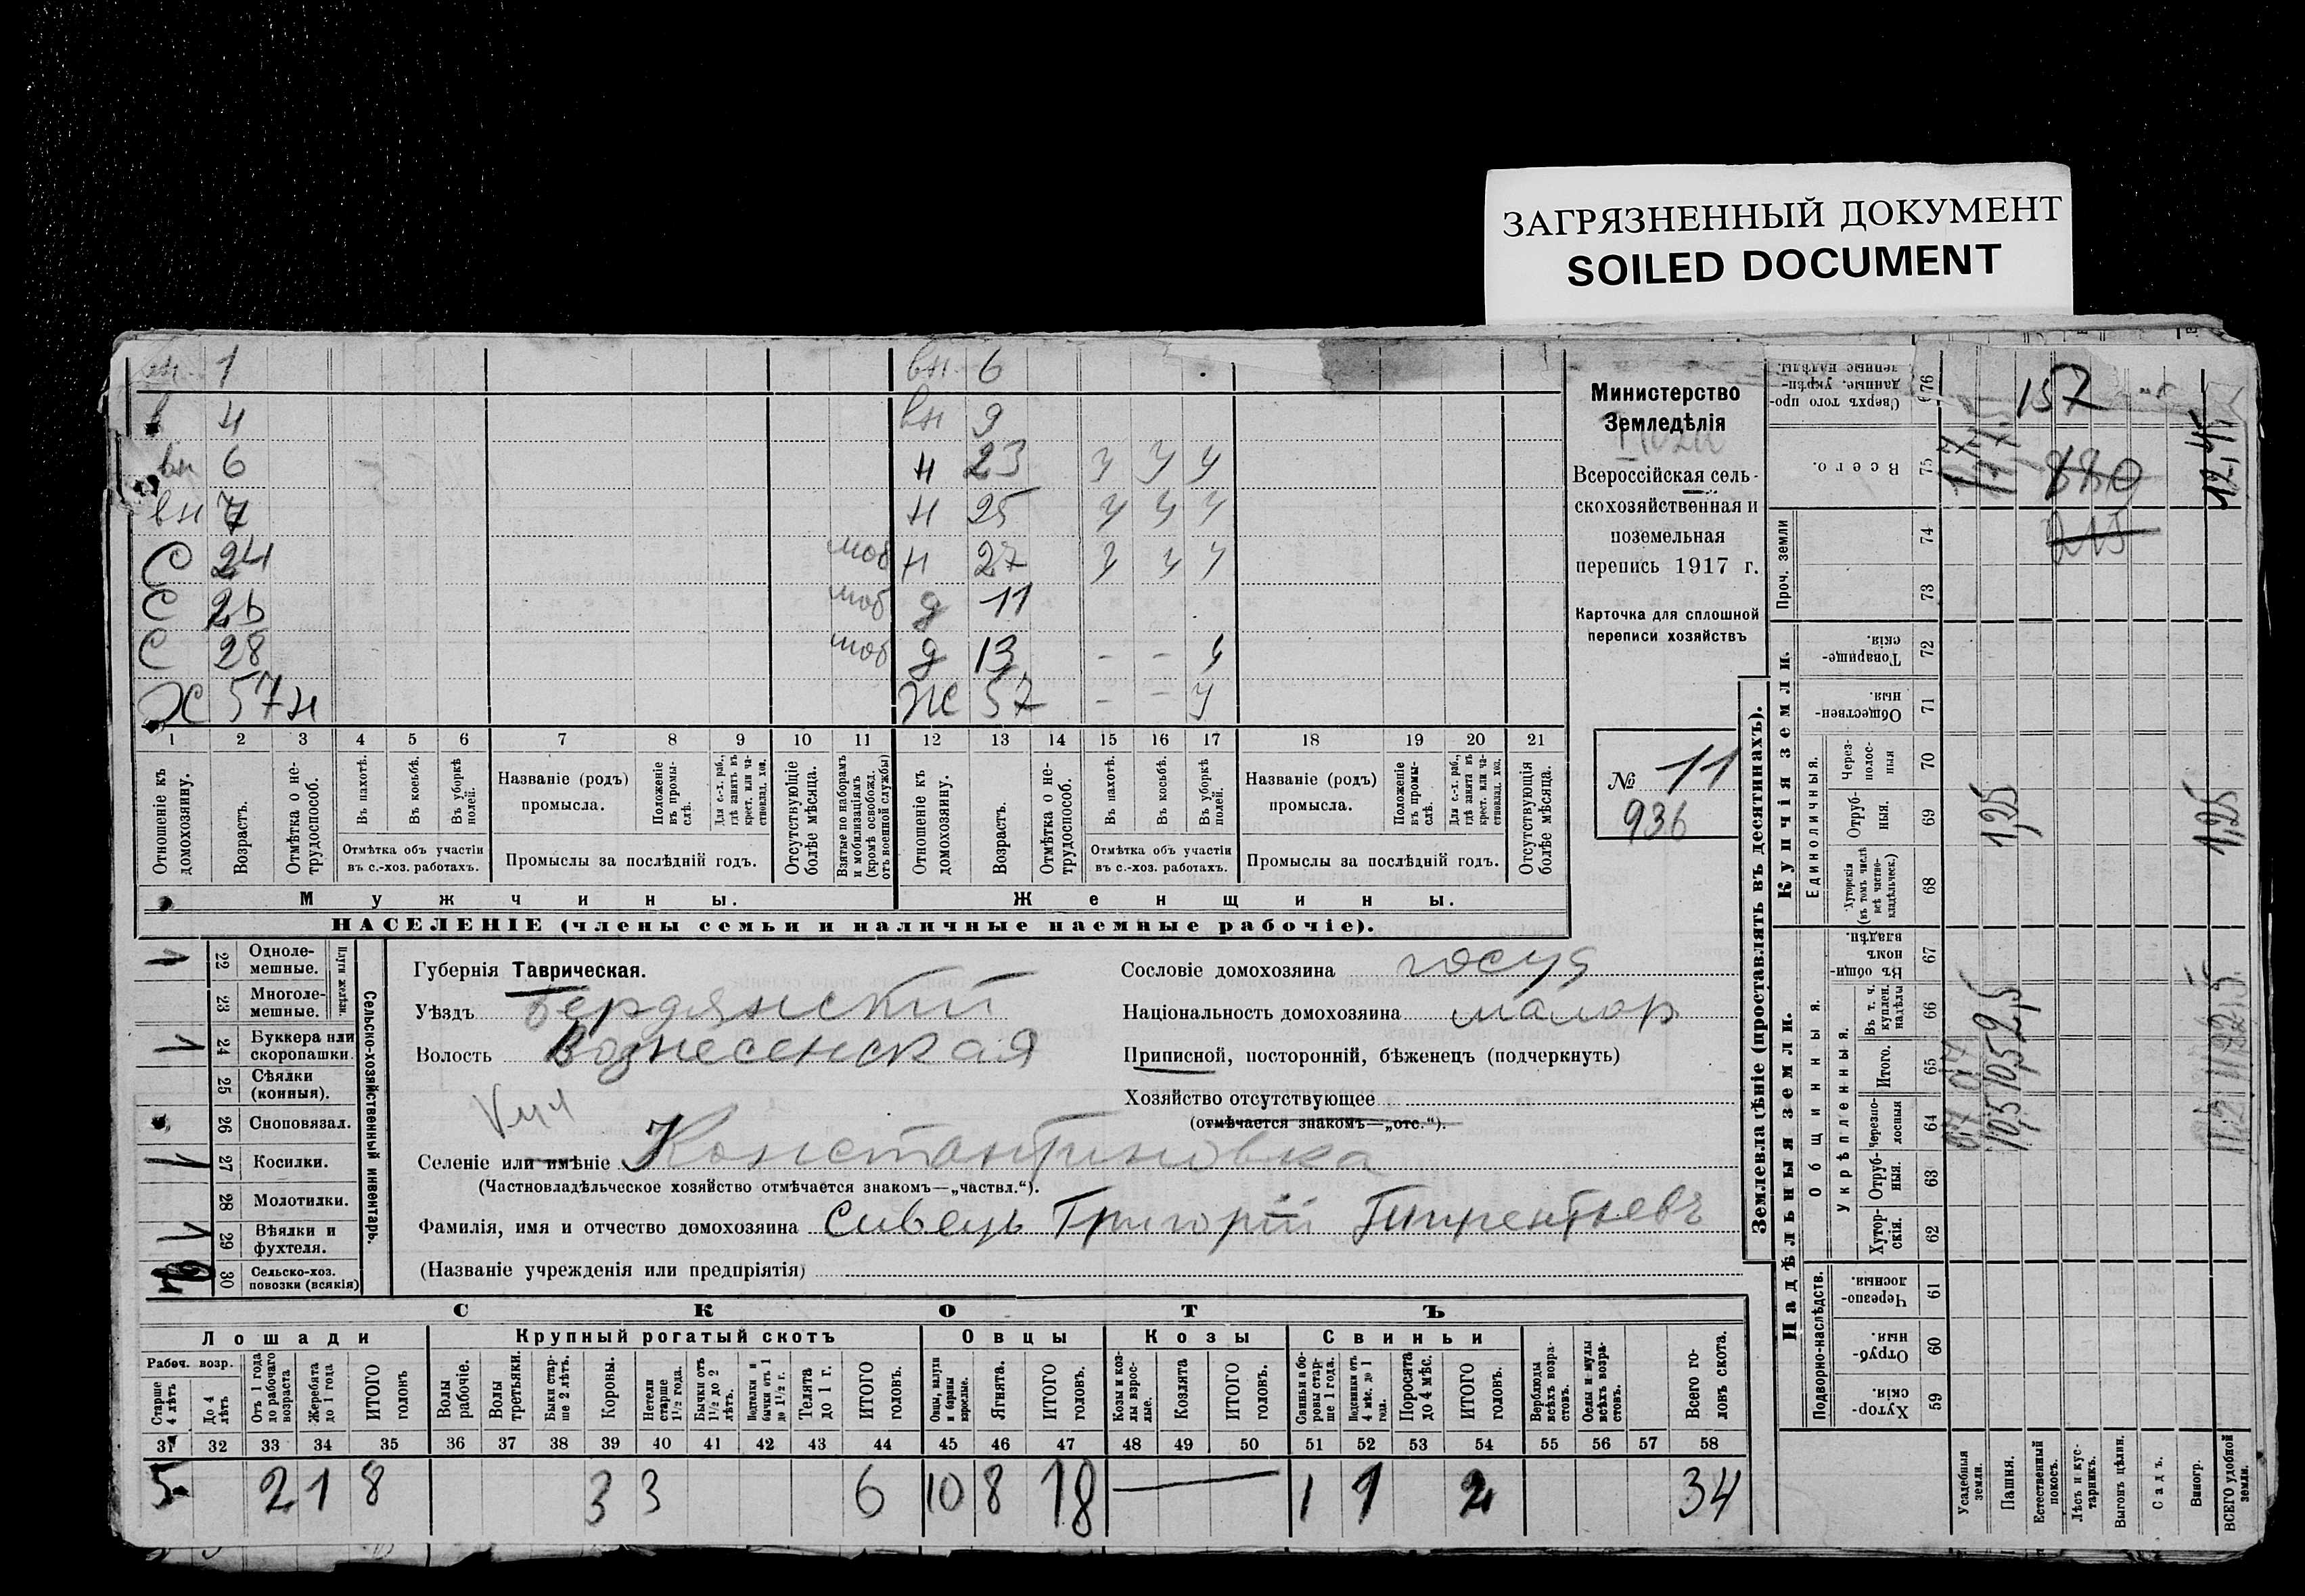 ЗАГРЯЗНЕННЫЙ ДОКУМЕНТ
SOILED DOCUMENT
1 вн 6
в 4 вн 9
вн 6 н 23 у у у
вн 7 н 25 у у у
С 24 моб н 27 у у у
С 26 моб д 11
С 28 моб д 13 - - у
Х 57 н Ж 57 - - у
1 2 3 4 5 6 7 8 9 10 11 12 13 14 15 16 17 18 19 20 21
Отношеніе къ домохозяину.
Возрастъ.
Отмѣтка о нетрудоспособ.
Въ пахотѣ.
Въ косьбѣ.
Въ уборкѣ полей.
Отмѣтка объ участіи
въ с.-хоз. работахъ.
Названіе (родъ)
промысла.
Положеніе въ промыслѣ.
Для с.-х. раб., гдѣ занятъ въ крест. или частновлад. хоз.
Промыслы за послѣдній годъ.
Отсутствующіе болѣе мѣсяца.
Взятые по наборамъ и мобилизаціямъ (кромѣ освобожд. отъ военной службы)
Отношеніе къ домохозяину.
Возрастъ.
Отмѣтка о нетрудоспособ.
Въ пахотѣ.
Въ косьбѣ.
Въ уборкѣ полей.
Отмѣтка объ участіи
въ с.-хоз. работахъ.
Названіе (родъ)
промысла.
Положеніе въ промыслѣ.
Для с.-х. раб., гдѣ занята въ крест. или частновлад. хоз.
Промыслы за послѣдній годъ.
Отсутствующія болѣе мѣсяца.
Мужчины. Женщины.
НАСЕЛЕНІЕ (члены семьи и наличные наемные рабочіе).
Министерство
Земледѣлія
Всероссійская сель-
скохозяйственная и
поземельная
перепись 1917 г.
Карточка для сплошной
переписи хозяйствъ
№ 11
936
22 Одноле-
мешные.
23 Многоле-
мешные.
Плуги желѣзн.
24 Буккера или
скоропашки.
25 Сѣялки
(конныя).
26 Сноповязал.
27 Косилки.
28 Молотилки.
29 Вѣялки и
фухтеля.
30 Сельско-хоз.
повозки (всякія)
Сельско-хозяйственный инвентарь.
Губернія Таврическая.
Уѣздъ Бердянский
Волость Вознесенская
Селеніе или имѣніе Константиновка
(Частновладѣльческое хозяйство отмѣчается знакомъ—„частвл.“).
Фамилія, имя и отчество домохозяина Сивець Григорій
(Названіе учрежденія или предпріятія)
Сословіе домохозяина госуд
Національность домохозяина малор
Приписной, посторонній, бѣженецъ (подчеркнуть)
Хозяйство отсутствующее
(отмѣчается знакомъ—„отс.“).
СКОТЪ
Лошади Крупный рогатый скотъ Овцы Козы Свиньи
Рабоч. возр.
Старше 4 лѣтъ
До 4 лѣтъ
Отъ 1 года до рабочаго возраста
Жеребята до 1 года
ИТОГО головъ
Волы рабочіе.
Волы третьяки.
Быки старше 2 лѣтъ.
Коровы.
Нетели старше 1½ года.
Бычки отъ 1½ до 2 лѣтъ.
Подтелки и бычки отъ 1 до 1½ г.
Телята до 1 г.
ИТОГО головъ.
Овцы, валухи и бараны взрослые.
Ягнята.
ИТОГО головъ.
Козы и козлы взрослые.
Козлята
ИТОГО головъ.
Свиньи и боровы старше 1 года.
Подсвинки отъ 4 мѣс. до 1 года.
Поросята до 4 мѣс.
ИТОГО головъ.
Верблюды всѣхъ возрастовъ.
Ослы и мулы всѣхъ возрастовъ.
Всего головъ скота.
31 32 33 34 35 36 37 38 39 40 41 42 43 44 45 46 47 48 49 50 51 52 53 54 55 56 57 58
5 2 1 8 3 3 6 10 8 18 — 1 1 2 34
Землевладѣніе (проставлять въ десятинахъ).
Надѣльныя земли.
Купчія земли.
Проч. земли
Подворно-наслѣдств.
Общинныя.
Укрѣпленныя.
Единоличныя.
Хуторскія 59
Отрубныя. 60
Черезполосныя. 61
Хуторскія. 62
Отрубныя. 63
Черезполосныя 64
Итого. 65
Въ т. ч. куплен. надѣлы 66
Въ общинномъ владѣн. 67
Хуторскія (въ томъ числѣ всѣ частновладѣльческ.) 68
Отрубныя. 69
Черезполосныя 70
Общественныя. 71
Товарищескія. 72
73
74
Всего. 75
Сверхъ того проданные, укрѣпленные надѣлы. 76
Усадебныя земли.
Пашня.
Естественный покосъ.
Лѣсъ и кустарникъ.
Выгонъ цѣлин.
Садъ.
Виногр.
ВСЕГО удобной земли.
157
1,25
1,25
10,5
12,45